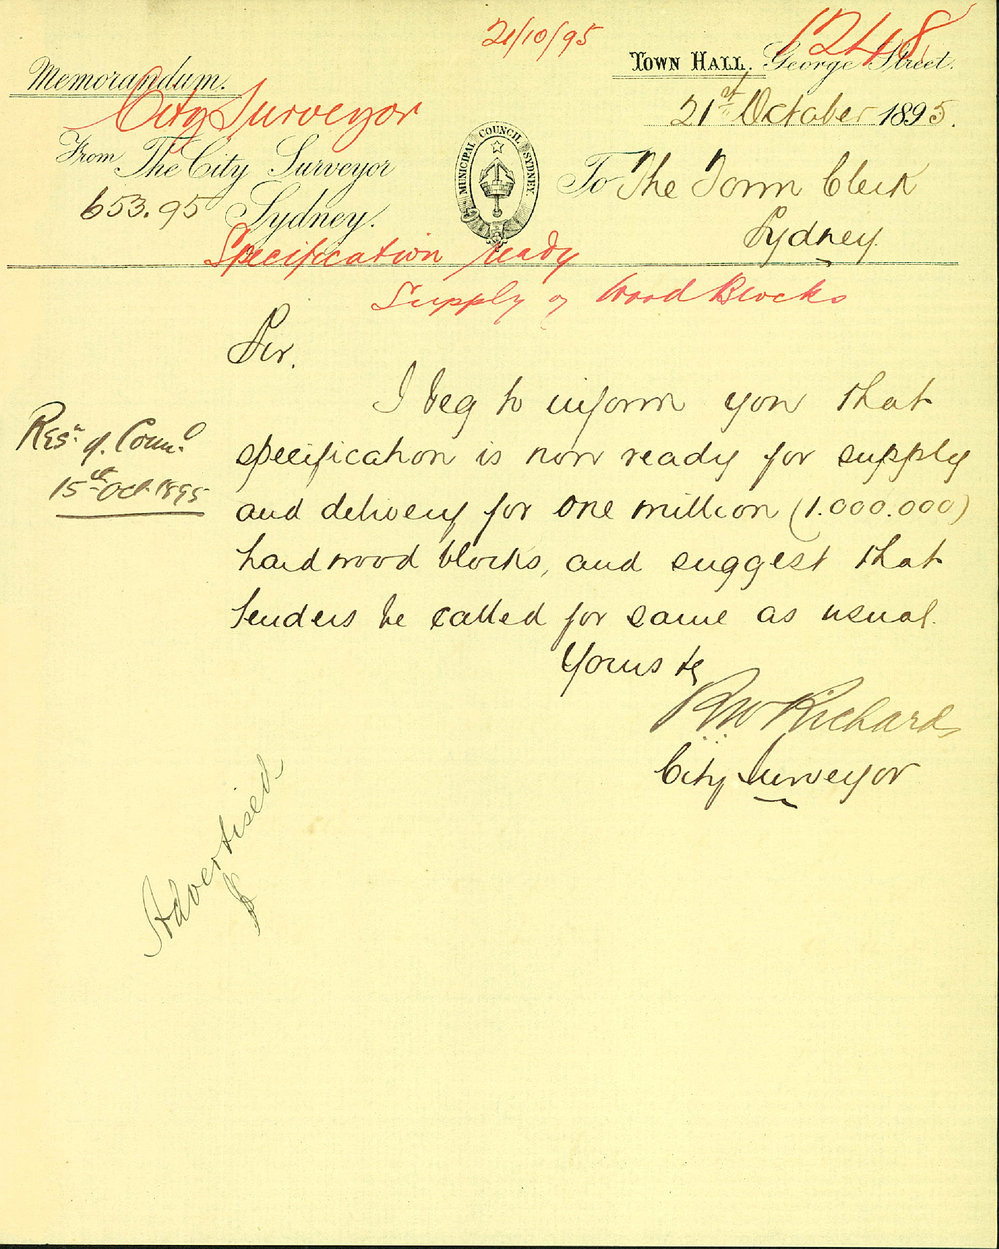 21/10/95
1248
TOWN HALL. George Street.
Memorandum.
City Surveyor
21st October 1895.
MUNICIPAL COUNCIL SYDNEY
From The City Surveyor
653.95 Sydney.
To The Town Clerk
Sydney.
Specification ready
Supply of Wood Blocks
Sir.
I beg to inform you that
Resn. of Councl
15th Oct. 1895
specification is now ready for supply
and delivery for one million (1.000.000)
hardwood blocks, and suggest that
tenders be called for same as usual.
Yours &c
RW Richards
City Surveyor
Advertised